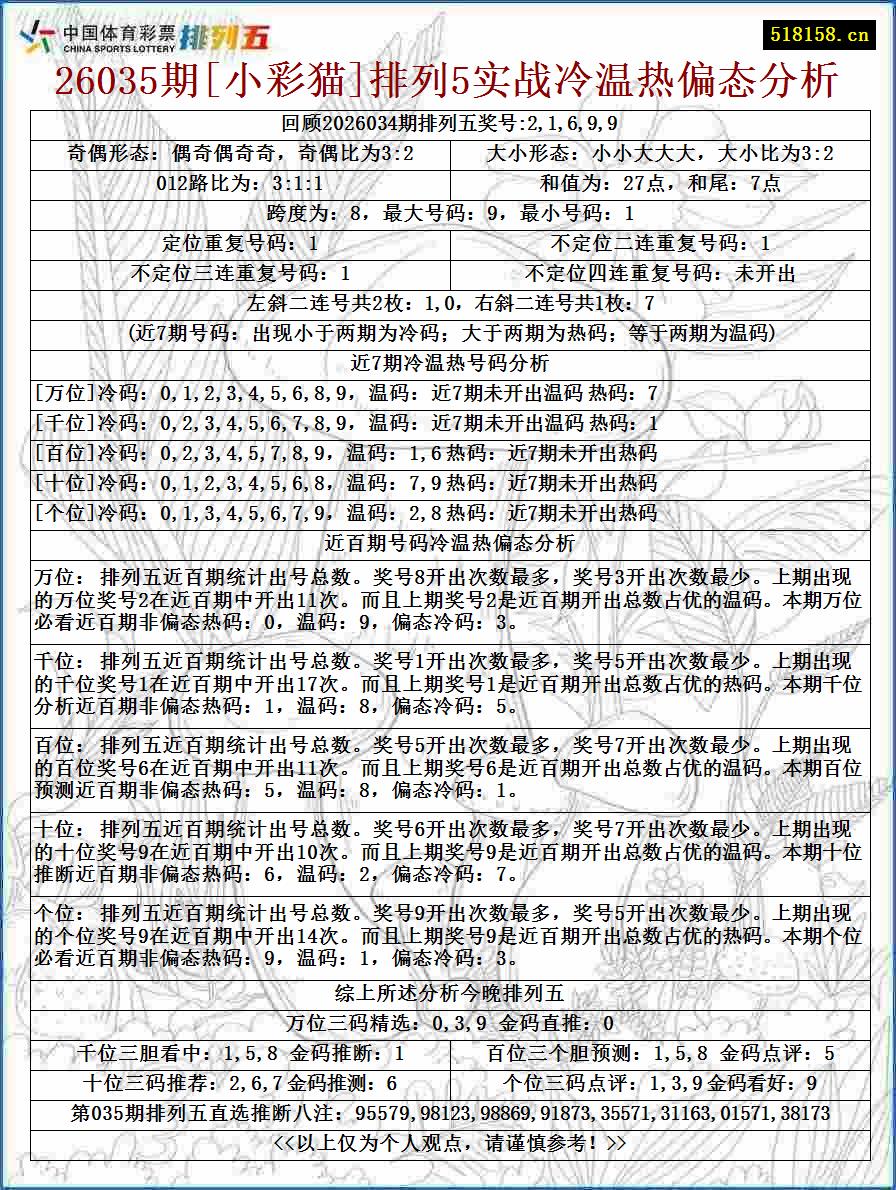 中国体育彩票 排列五
CHINA SPORTS LOTTERY
518158.cn
26035期[小彩猫]排列5实战冷温热偏态分析
回顾2026034期排列五奖号:2,1,6,9,9
奇偶形态：偶奇偶奇奇，奇偶比为3:2
大小形态：小小大大大，大小比为3:2
012路比为：3:1:1
和值为：27点，和尾：7点
跨度为：8，最大号码：9，最小号码：1
定位重复号码：1
不定位二连重复号码：1
不定位三连重复号码：1
不定位四连重复号码：未开出
左斜二连号共2枚：1,0，右斜二连号共1枚：7
(近7期号码：出现小于两期为冷码；大于两期为热码；等于两期为温码)
近7期冷温热号码分析
[万位]冷码：0,1,2,3,4,5,6,8,9，温码：近7期未开出温码 热码：7
[千位]冷码：0,2,3,4,5,6,7,8,9，温码：近7期未开出温码 热码：1
[百位]冷码：0,2,3,4,5,7,8,9，温码：1,6 热码：近7期未开出热码
[十位]冷码：0,1,2,3,4,5,6,8，温码：7,9 热码：近7期未开出热码
[个位]冷码：0,1,3,4,5,6,7,9，温码：2,8 热码：近7期未开出热码
近百期号码冷温热偏态分析
万位： 排列五近百期统计出号总数。奖号8开出次数最多，奖号3开出次数最少。上期出现
的万位奖号2在近百期中开出11次。而且上期奖号2是近百期开出总数占优的温码。本期万位
必看近百期非偏态热码：0，温码：9，偏态冷码：3。
千位： 排列五近百期统计出号总数。奖号1开出次数最多，奖号5开出次数最少。上期出现
的千位奖号1在近百期中开出17次。而且上期奖号1是近百期开出总数占优的热码。本期千位
分析近百期非偏态热码：1，温码：8，偏态冷码：5。
百位： 排列五近百期统计出号总数。奖号5开出次数最多，奖号7开出次数最少。上期出现
的百位奖号6在近百期中开出11次。而且上期奖号6是近百期开出总数占优的温码。本期百位
预测近百期非偏态热码：5，温码：8，偏态冷码：1。
十位： 排列五近百期统计出号总数。奖号6开出次数最多，奖号7开出次数最少。上期出现
的十位奖号9在近百期中开出10次。而且上期奖号9是近百期开出总数占优的温码。本期十位
推断近百期非偏态热码：6，温码：2，偏态冷码：7。
个位： 排列五近百期统计出号总数。奖号9开出次数最多，奖号5开出次数最少。上期出现
的个位奖号9在近百期中开出14次。而且上期奖号9是近百期开出总数占优的热码。本期个位
必看近百期非偏态热码：9，温码：1，偏态冷码：3。
综上所述分析今晚排列五
万位三码精选：0,3,9 金码直推：0
千位三胆看中：1,5,8 金码推断：1
百位三个胆预测：1,5,8 金码点评：5
十位三码推荐：2,6,7 金码推测：6
个位三码点评：1,3,9 金码看好：9
第035期排列五直选推断八注：95579,98123,98869,91873,35571,31163,01571,38173
<<以上仅为个人观点，请谨慎参考！>>